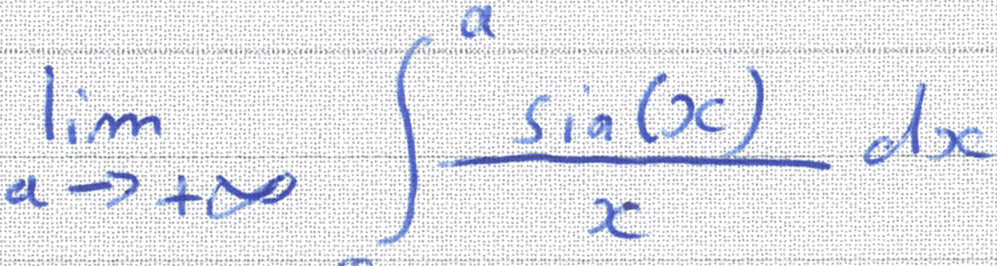 lim a→+∞ ∫^a sin(x)/x dx